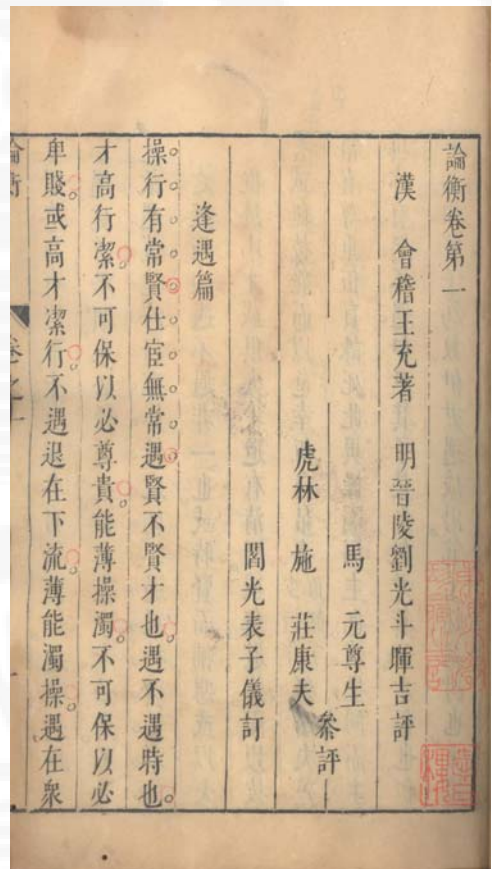 論衡卷第一
漢　會稽王充著　明晉陵劉光斗暉吉評
馬　元尊生
虎林　施　莊康夫　參評
閻光表子儀訂
逢遇篇
操行有常賢仕宦無常遇賢不賢才也遇不遇時也
才高行潔不可保以必尊貴能薄操濁不可保以必
卑賤或高才潔行不遇退在下流薄能濁操遇在衆
論衡　卷之一　一